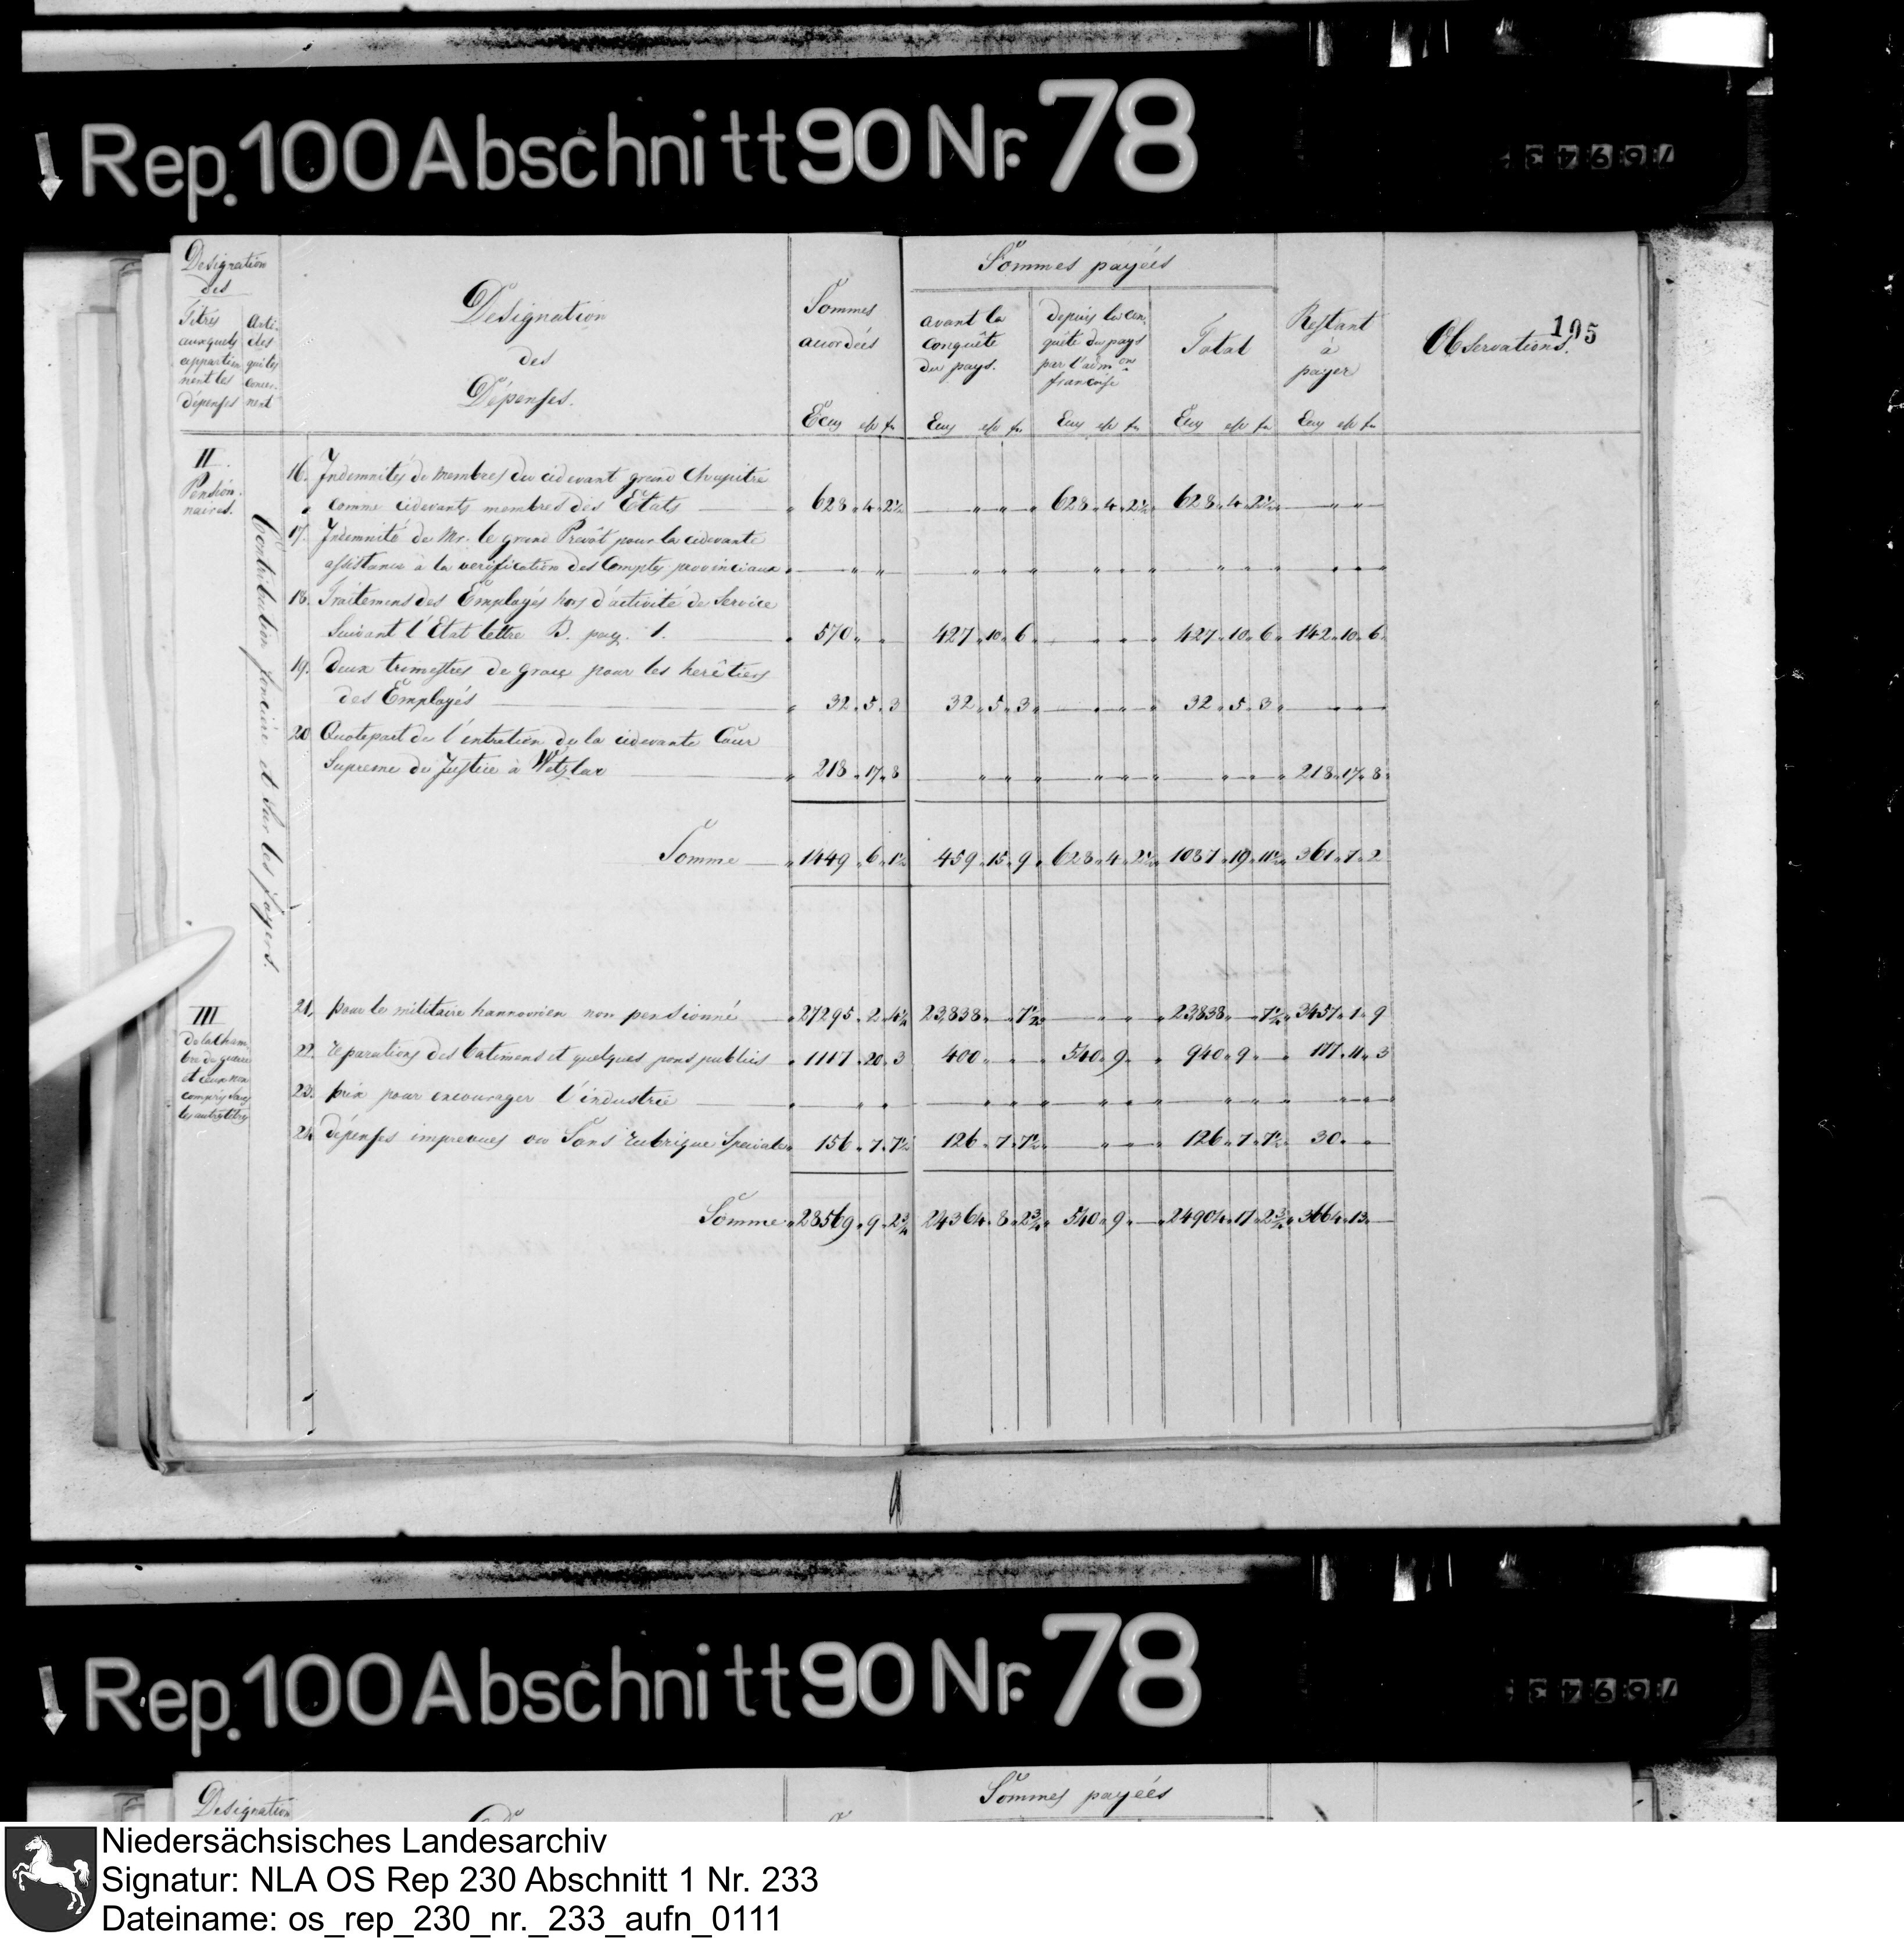 Rep. 100 Abschnitt 90 Nr. 78
Designation
des
Titres auxquels appartiennent les dépenses
Articles qui les concernent
Designation
des
Dépenses.
Sommes
accordées
Sommes payées
avant la
conquête
du pays.
depuis la con-
quête du pays
par l'adm.on
françoise
Total
Restant
à
payer
Observations.
105
Ecus
Ecus
Ecus
Ecus
Ecus
II.
Pension-
naires.
Contribution foncière et Sur les foyers.
16. Indemnités de membres du cidevant grand Chapitre
comme cidevants membres des Etats 628 4 2½ 628 4 2½ 628 4 2½
17. Indemnité de Mr. le grand Prevôt pour la cidevante
assistance à la verification des Comptes provinciaux
18. Traitemens des Employés hors d'activité de Service
Suivant l'Etat lettre B. pag. 1. 570 427 10 6 427 10 6 142 10 6
19. deux trimestres de grace pour les herêtiers
des Employés 32 5 3 32 5 3 32 5 3
20. Quotepart de l'entretien de la cidevante Cour
Supreme de Justice à Wetzlar 218 17 8 218 17 8
Somme 1449 6 1½ 459 15 9 628 4 2½ 1087 19 11½ 361 7 2
III
de la Cham-
bre de guerre
et ceux non
compris Sous
les autres titres
21. pour le militaire hannovrien non pensionné 27295 2 4½ 23838 7½ 23838 7½ 3457 1 9
22. reparations des batimens et quelques ponts publics 1117 20 3 400 540 9 940 9 177 11 3
23. prix pour encourager l'industrie
24. dépenses imprevues ou Sans rubrique Speciale 156 7 7½ 126 7 7½ 126 7 7½ 30
Somme 28569 9 2¾ 24364 8 2¾ 540 9 24904 17 2¾ 3664 13
Rep. 100 Abschnitt 90 Nr. 78
Designation
Sommes payées
Niedersächsisches Landesarchiv
Signatur: NLA OS Rep 230 Abschnitt 1 Nr. 233
Dateiname: os_rep_230_nr._233_aufn_0111